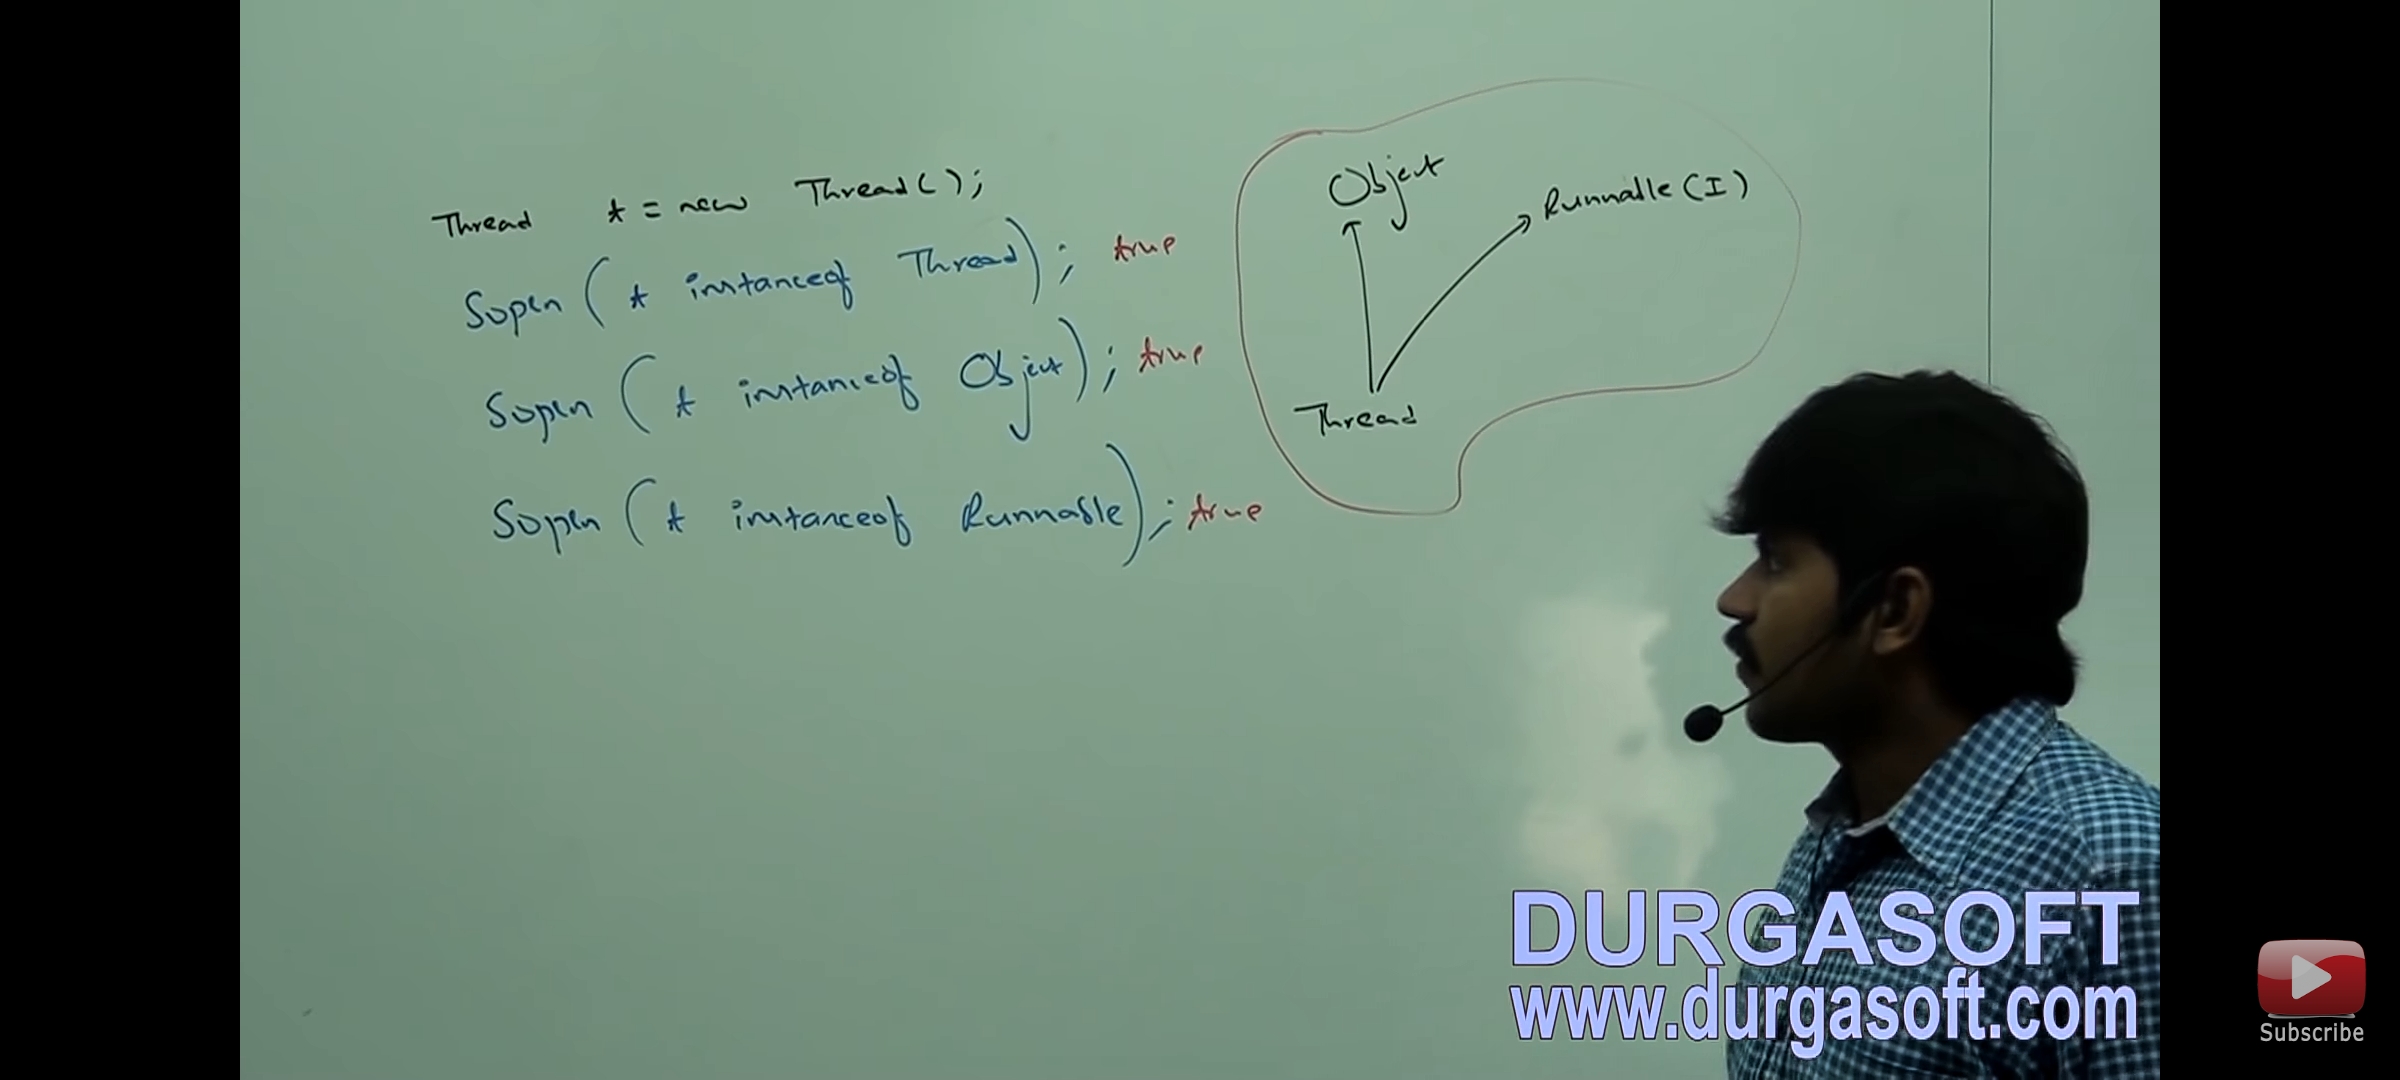 Thread t = new Thread();
Sopln (t instanceof Thread); true
Sopln (t instanceof Object); true
Sopln (t instanceof Runnable); true
Object
Runnable (I)
Thread
DURGASOFT
www.durgasoft.com
Subscribe